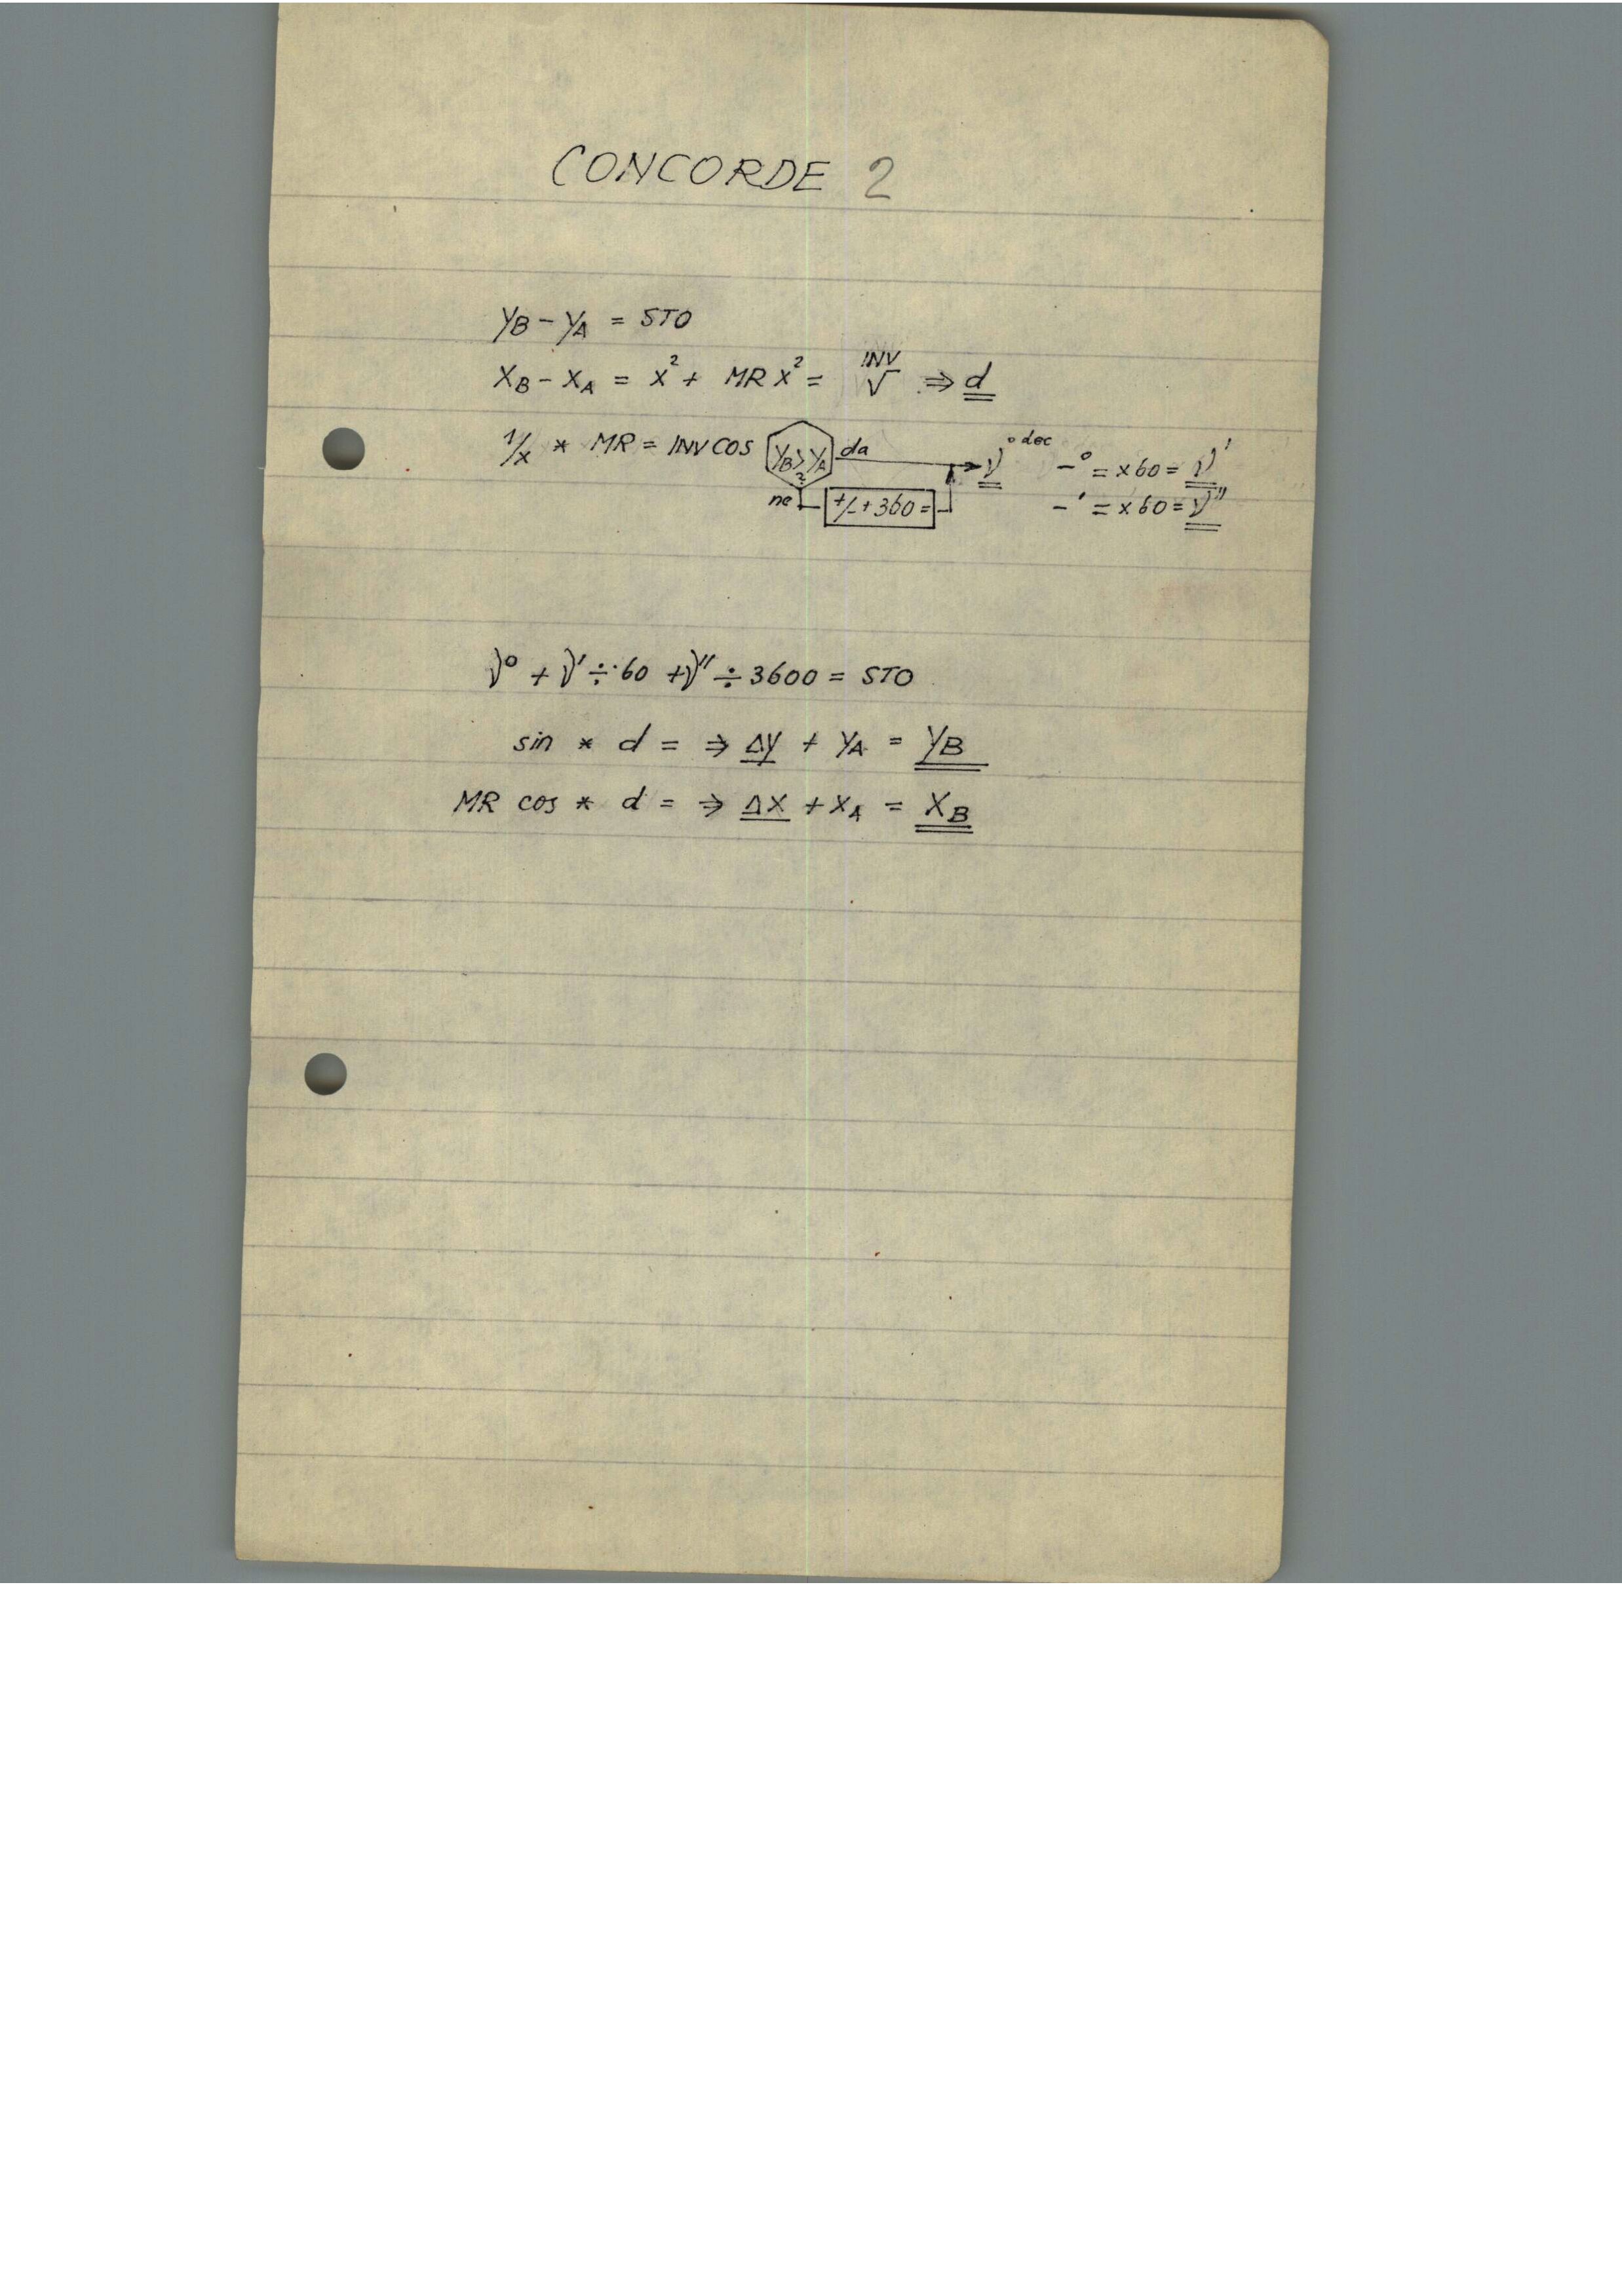 CONCORDE 2
yB - yA = STO
xB - xA = x² + MR x² = INV √ ⇒ d
1/x * MR = INV COS yB > yA ? da → ν ° dec - ° = x 60 = ν'
ne +/- + 360 = - ' = x 60 = ν"
ν° + ν' ÷ 60 + ν" ÷ 3600 = STO
sin * d = ⇒ Δy + yA = yB
MR cos * d = ⇒ Δx + xA = xB